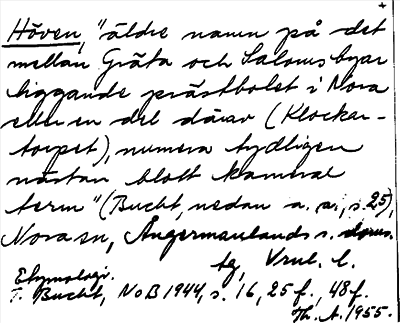 Höven, "äldre namn på det
mellan Gräta och Salomsbyar
liggande prästbolet i Nora
eller en del därav (Klockar-
torpet), numera tydligen
nästan blott kameral
term" (Bucht, nedan a. a., s. 25),
Nora sn, Ångermanlands s.
tg, Vrnl. l.
Etymologi.
T. Bucht, NoB 1944, s. 16, 25 f., 48 f.
Th. A. 1955.